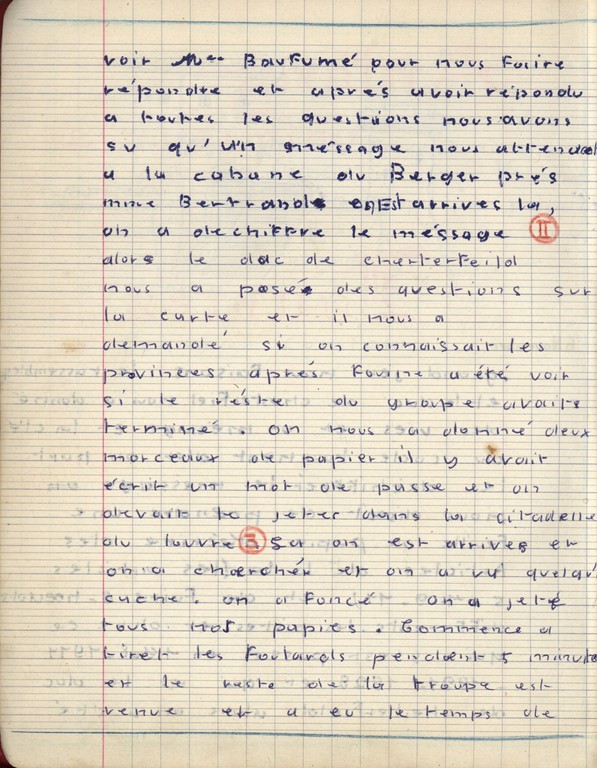 voir Mme Baufumé pour nous faire
répondre et aprés avoir répondu
a toutes les questions nous avons
su qu'un méssage nous attendait
a la cabane du Berger prés
mme Bertrand on Est arrives la,
on a dechiffre le méssage II
alors le duc de cherterfeild
nous a posé des questions sur
la carte et il nous a
demandé si on connaissait les
provinces aprés Foune a été voir
si le réste du groupe avaits
terminé. on nous a donné deux
morceaux de papier il y avait
écrit un mot de passe et on
devait le jeter dans la citadelle
du louvre 5 Sa on est arrives et
on a cherché et on a vu quelqu
cache. on a foncé on a jeté
tous nos papies. Commence a
tiret les Foutards pendant 5 minute
et le reste de la troupe est
venue et a eu le temps de